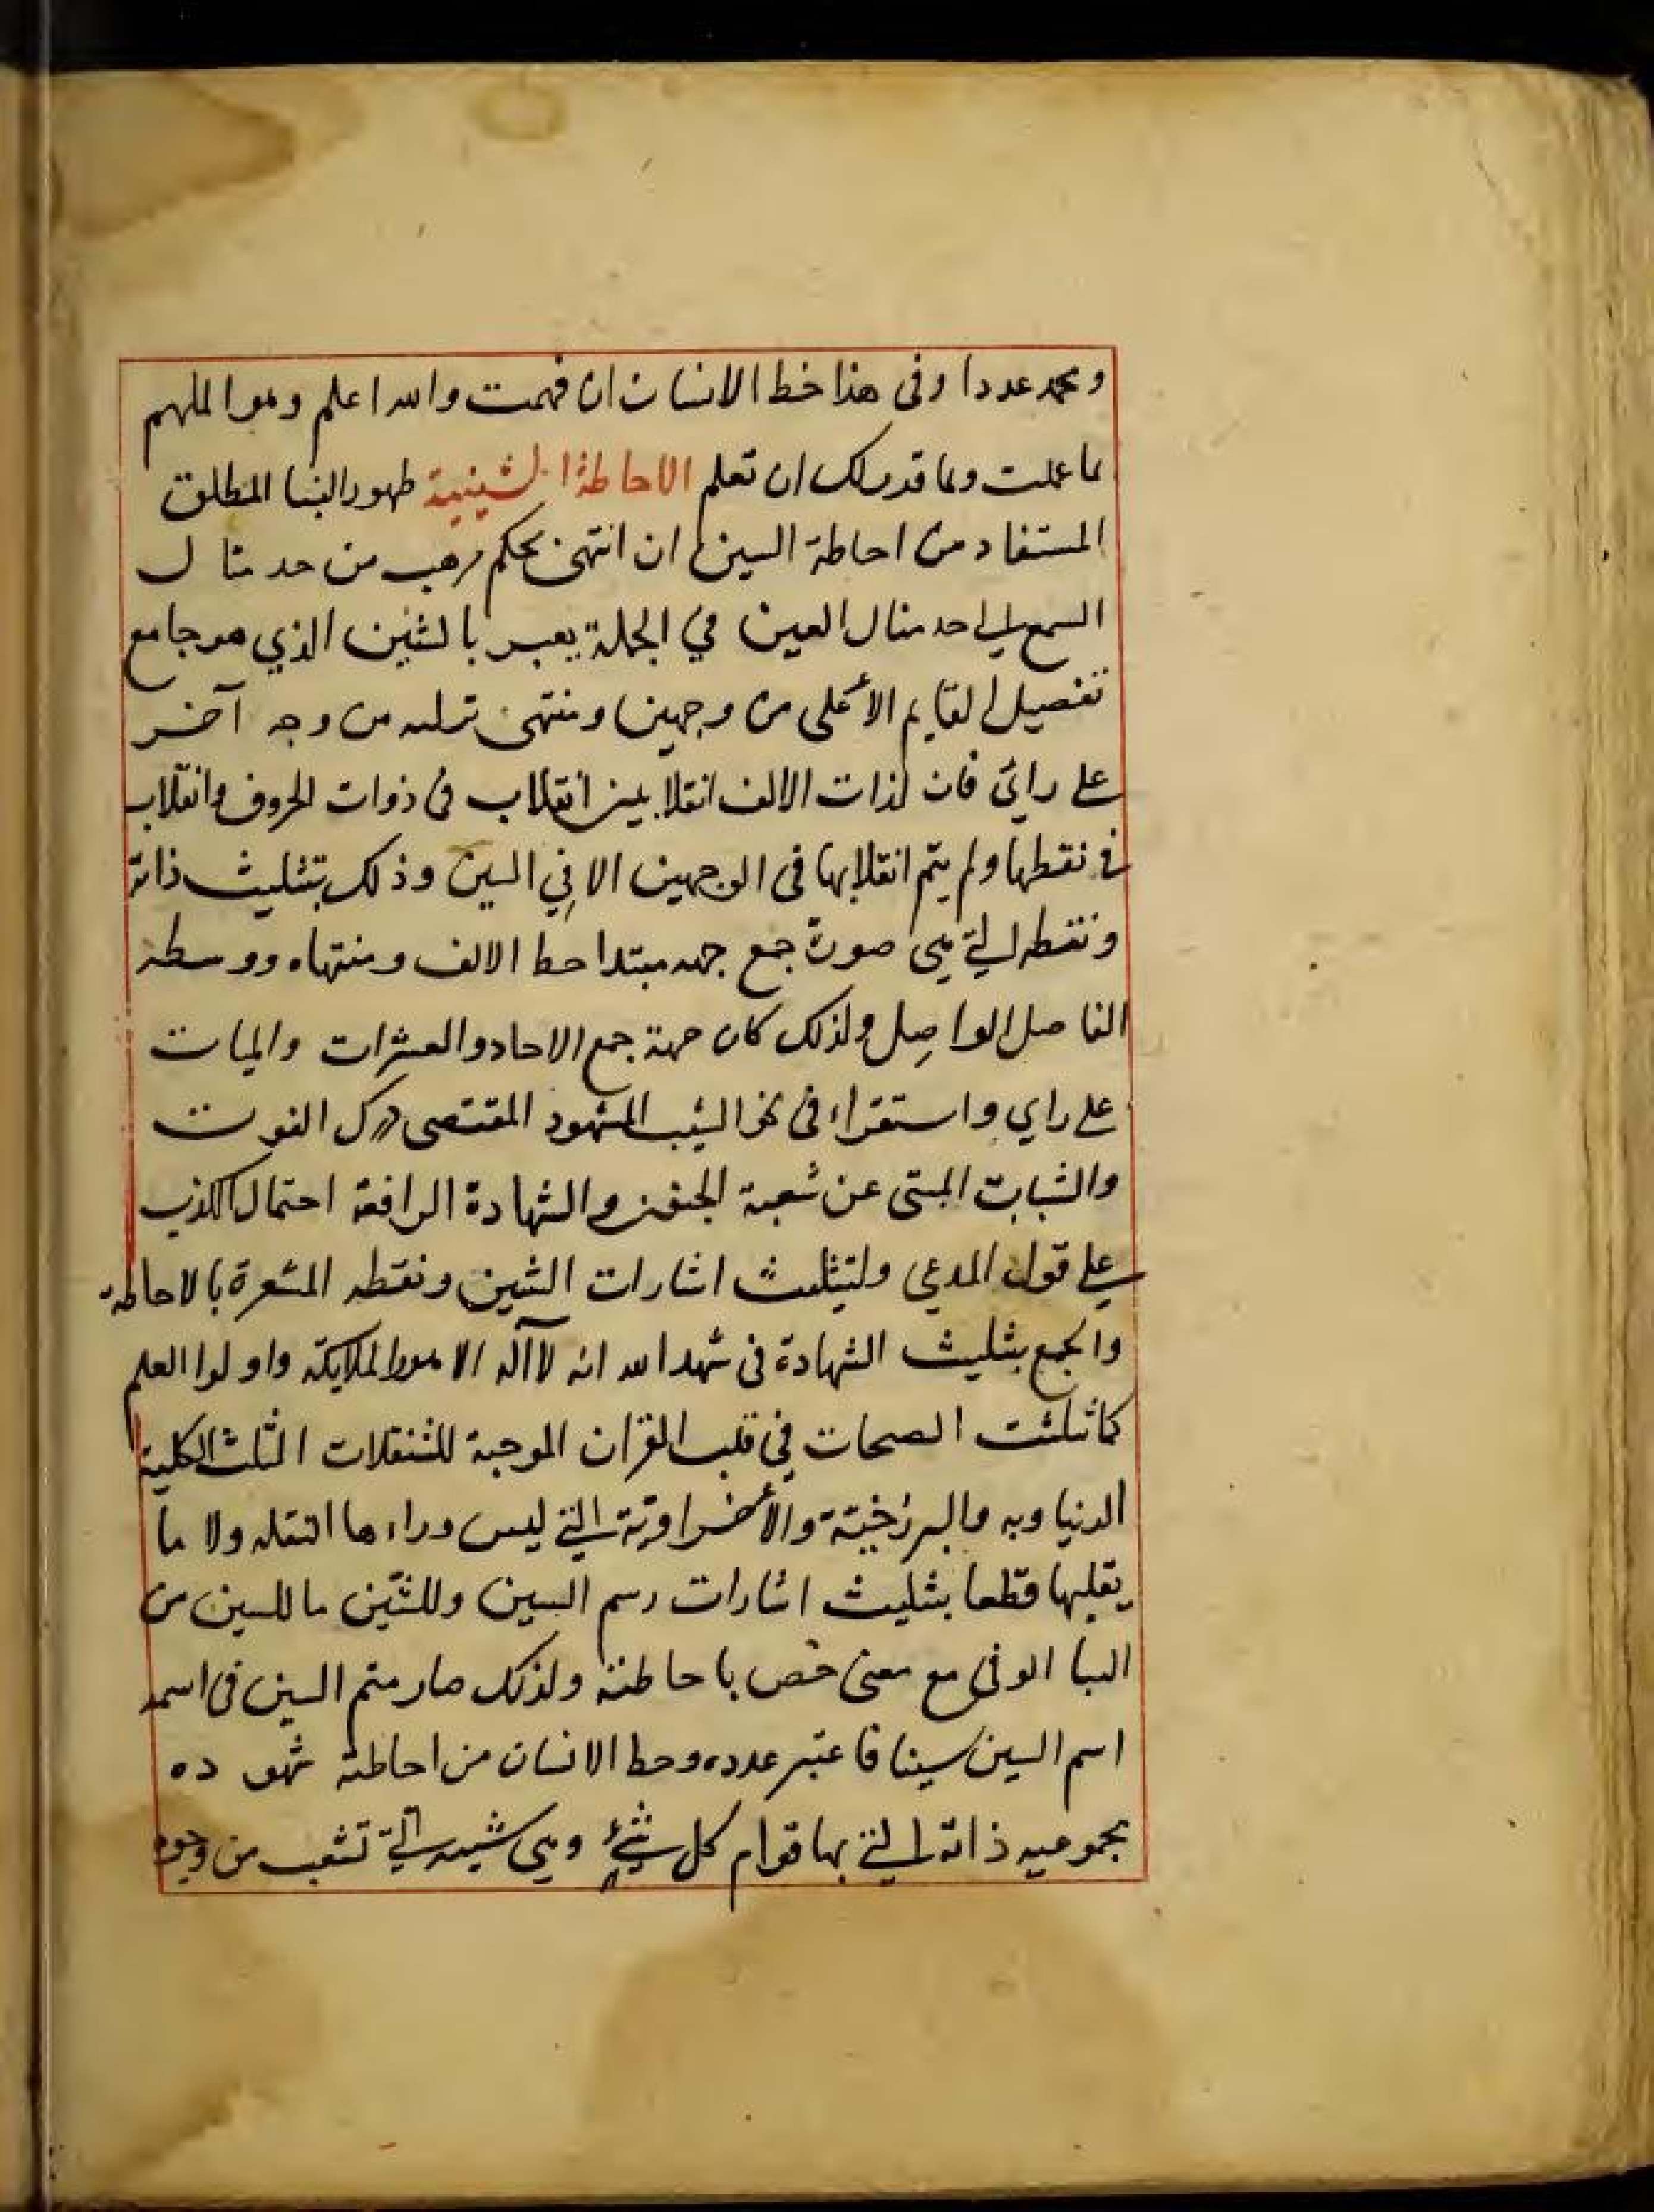 ومحمد عددا وفى هذا خط الانسان ان فهمت والله اعلم وهو الملهم
ما علمت وما قدر لك ان تعلم الاحاطة الشينية ظهور البنا المطلق
المستفاد من احاطة السين ان انتهى بحكم من حد منال
السمع الى احد منال العين في الجملة يعبر بالشين الذي هو جامع
تفصيل القايم الأعلى من وجهين ومنتهى تنزله من وجه آخر
على رائ فان لذات الالف انقلابين انقلاب فى ذوات الحروف وانقلاب
في نقطها ولم يتم انقلابها فى الوجهين الا في الشين وذلك بتثليث ذاته
ونقطه التي هي صورة جمع جهه مبتدا خط الالف ومنتهاه ووسطه
الفاصل الواصل ولذلك كان جهة جمع الاحاد والعشرات والميات
على راي واستقراء فى نحو الشيب المشهود المقتضى درك الفوت
والشباب عن شعبة الجنون والشهادة الرافعة احتمال الكذب
على قول المدعي ولتثليث اشارات الشين ونقطه المشعرة بالاحاطة
والجمع بثليث الشهادة فى شهد الله انه لا آله الا هو والملايكة واولوا العلم
كما ثلثت الصيحات في قلب القران الموجبة للتنقلات الثلث الكلية
الدنياويه والبرزخية والأخراوية التي ليس وراءها انتقله ولا ما
يقلبها قطعا بثليث اشارات رسم السين وللشين ما للسين من
البنا الوفى مع معنى خص باحاطته ولذلك صار متم السين فى اسمه
اسم السين سينا فاعتبر عدده وحط الانسان من احاطته شهوده
بجموعيه ذاته التي بها قوام كل شيءٍ وهي شيبه التي تشعب من وجوه